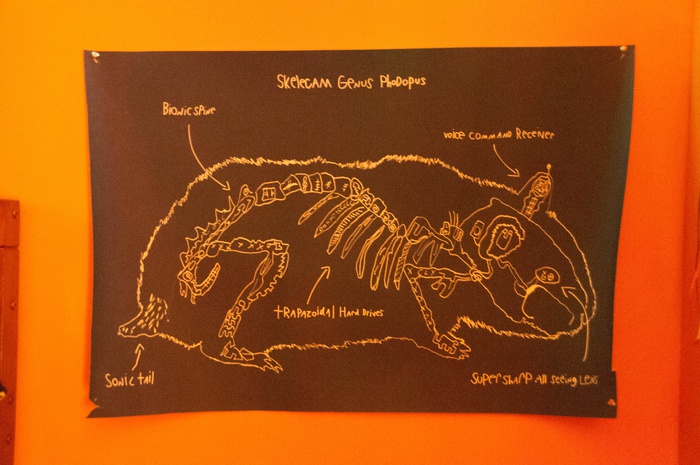 Skelecam Genus Phodopus
Bionic Spine
voice command Reciever
trapazoidal Hard Drives
Sonic tail
Super sharp All seeing Lens